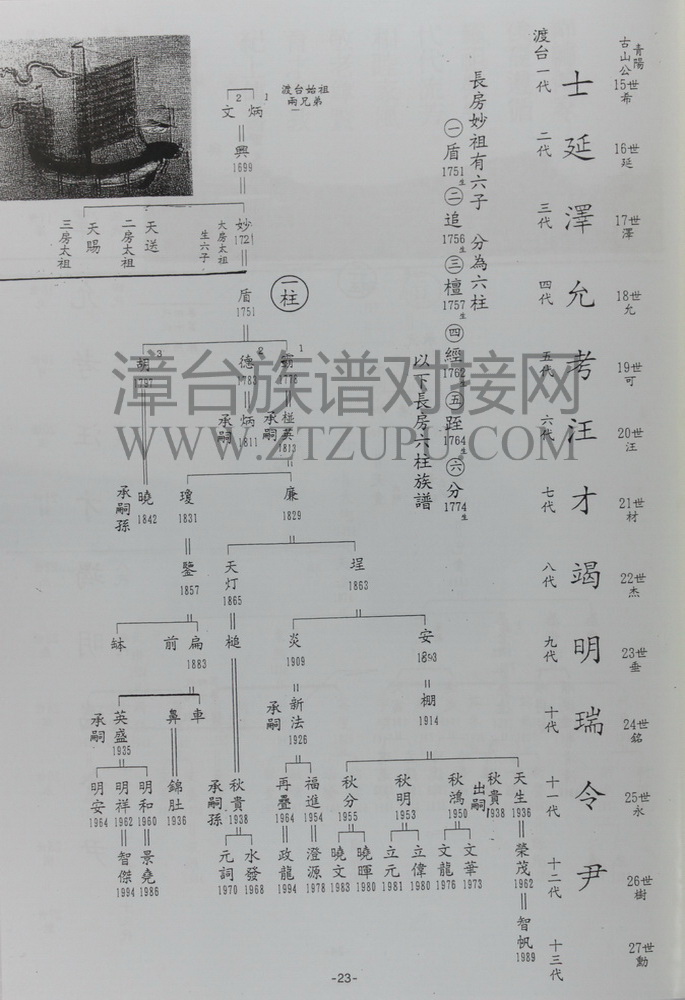 青陽
古山公
15世
希
16世
延
17世
澤
18世
允
19世
可
20世
汪
21世
材
22世
杰
23世
垂
24世
銘
25世
永
26世
樹
27世
勳
士延澤允考汪才竭明瑞令尹
渡台一代
二代
三代
四代
五代
六代
七代
八代
九代
十代
十一代
十二代
十三代
長房妙祖有六子 分為六柱
㊀盾1751生㊁追1756生㊂檀1757生㊃經1762生㊄踁1764生㊅分1774生
以下長房六柱族譜
渡台始祖
兩兄弟
1
炳
2
文
興
1699
妙
1721
大房太祖
生六子
天送
二房太祖
天賜
三房太祖
一柱
盾
1751
1
霸
1778
2
德
1783
3
胡
1797
楹英
1813
承嗣
炳
1811
承嗣
曉
1842
承嗣孫
廉
1829
瓊
1831
埕
1863
天灯
1865
鑒
1857
安
1893
炎
1909
槌
扁
1883
前
缽
棚
1914
新法
1926
承嗣
車
鼻
英盛
1935
承嗣
天生
1936
秋貴
1938
出嗣
秋鴻
1950
秋明
1953
秋分
1955
福進
1954
再疊
1964
秋貴
1938
承嗣孫
錦肚
1936
明和
1960
明祥
1962
明安
1964
榮茂
1962
文華
1973
文龍
1976
立偉
1980
立元
1981
曉暉
1980
曉文
1983
澄源
1978
政龍
1994
水發
1968
元詞
1970
景堯
1986
智傑
1994
智帆
1989
漳台族谱对接网
WWW.ZTZUPU.COM
-23-